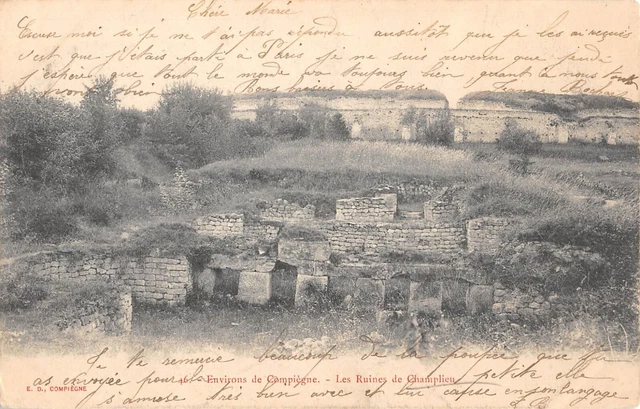 Chère Marie
Excuse moi si je ne t'ai pas répondu aussitôt que je les ai reçues
c'est que j'étais partie à Paris je ne suis revenue que jeudi
j'espère que tout le monde va toujours bien, quant à nous toute
va bien
Bons baisers à tous
Je te remercie beaucoup de la poupée que tu
46 - Environs de Compiègne. - Les Ruines de Champlieu
as envoyée pour la petite elle
E. D., COMPIÈGNE
s'amuse très bien avec et lui cause en son langage